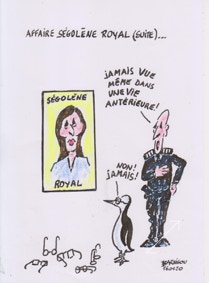 AFFAIRE SÉGOLÈNE ROYAL (SUITE)...
JAMAIS VUE
MÊME DANS
UNE VIE
ANTÉRIEURE!
SÉGOLÈNE
ROYAL
NON!
JAMAIS!